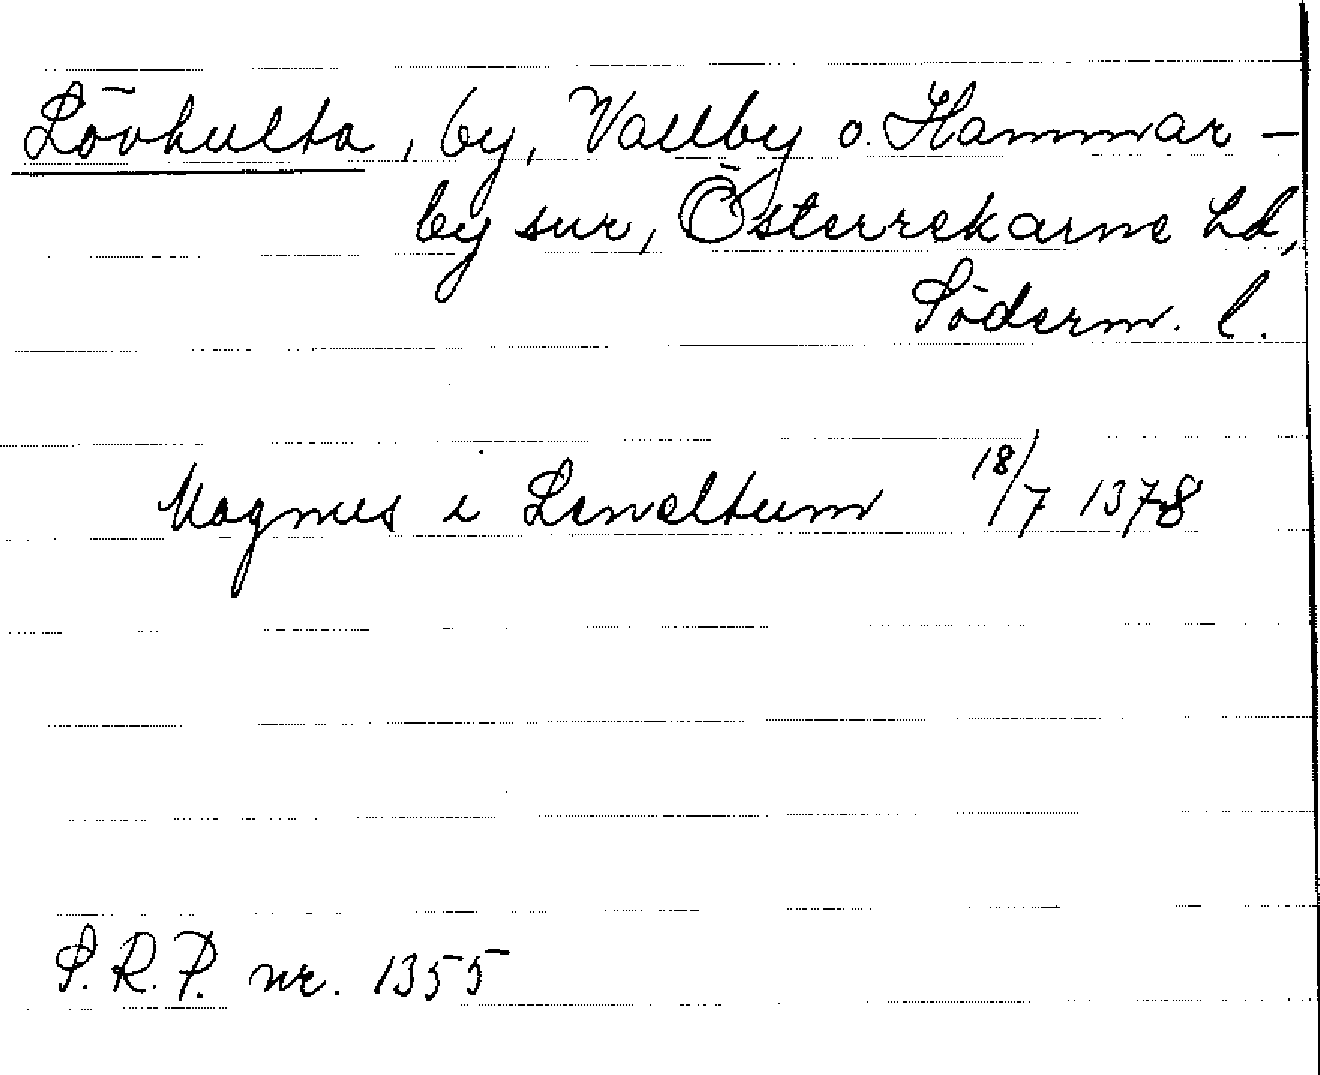 Lövhulta, by, Vallby o. Hammar-
by snr, Österrekarne hd,
Söderm. l.
Magnus i Leweltum 18/7 1378
S.R.P. nr. 1355